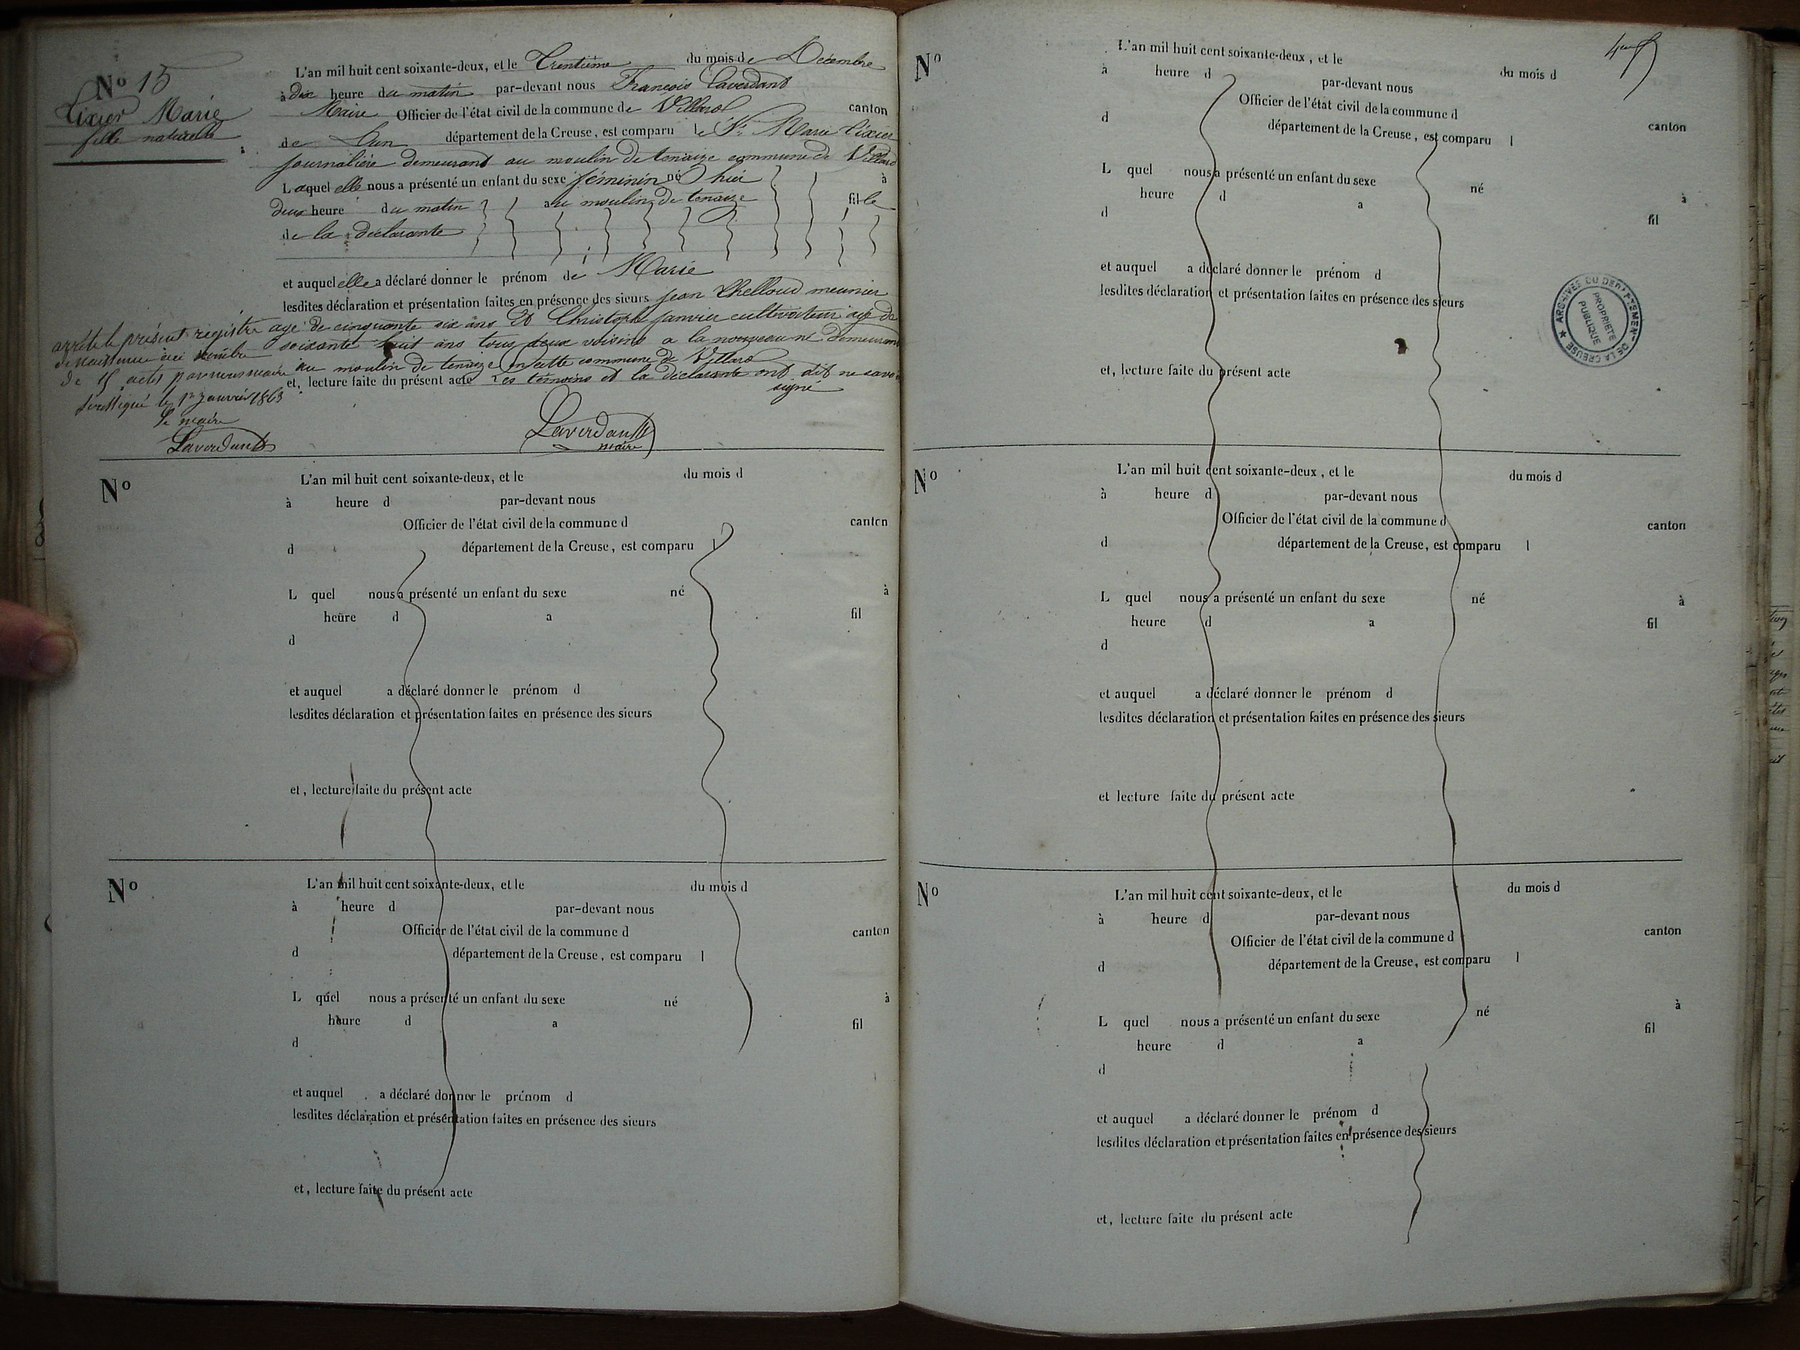 No 15
Tixier Marie
fille naturelle
L'an mil huit cent soixante-deux, et le Trentième du mois de Décembre
à dix heure du matin par-devant nous François Laverdant
Maire Officier de l'état civil de la commune de Villard canton
de Dun département de la Creuse, est comparu le Sr Marie Tixier
journalière demeurant au moulin de tenaize commune de Villard
Laquelle nous a présenté un enfant du sexe féminin né hier à
deux heure du matin au moulin de tenaize fille
de la déclarante
et auquel elle a déclaré donner le prénom de Marie
lesdites déclaration et présentation faites en présence des sieurs Jean Chelloud meunier
agé de cinquante six ans et Christophe Janvier cultivateur agé de
soixante huit ans tous deux voisins a la nouveau né demeurant
au moulin de tenaize en cette commune de Villard
et, lecture faite du présent acte Les témoins et la déclarante ont dit ne savoir
signé
Laverdant
maire
arrêté le présent registre
de naissance
de 15 actes par nous maire
soussigné le 1er Janvier 1863
Le maire
Laverdant
No
L'an mil huit cent soixante-deux, et le du mois d
à heure d par-devant nous
Officier de l'état civil de la commune d canton
d département de la Creuse, est comparu l
L quel nous a présenté un enfant du sexe né à
heure d a fil
d
et auquel a déclaré donner le prénom d
lesdites déclaration et présentation faites en présence des sieurs
et, lecture faite du présent acte
No
L'an mil huit cent soixante-deux, et le du mois d
à heure d par-devant nous
Officier de l'état civil de la commune d canton
d département de la Creuse, est comparu l
L quel nous a présenté un enfant du sexe né à
heure d a fil
d
et auquel a déclaré donner le prénom d
lesdites déclaration et présentation faites en présence des sieurs
et, lecture faite du présent acte
No
L'an mil huit cent soixante-deux, et le du mois d
à heure d par-devant nous
Officier de l'état civil de la commune d
d département de la Creuse, est comparu l canton
L quel nous a présenté un enfant du sexe né à
heure d a fil
d
et auquel a déclaré donner le prénom d
lesdites déclaration et présentation faites en présence des sieurs
et, lecture faite du présent acte
ARCHIVES DU DEPARTEMENT DE LA CREUSE
PROPRIETE
PUBLIQUE
No
L'an mil huit cent soixante-deux, et le du mois d
à heure d par-devant nous
Officier de l'état civil de la commune d canton
d département de la Creuse, est comparu l
L quel nous a présenté un enfant du sexe né à
heure d a fil
d
et auquel a déclaré donner le prénom d
lesdites déclaration et présentation faites en présence des sieurs
et lecture faite du présent acte
No
L'an mil huit cent soixante-deux, et le du mois d
à heure d par-devant nous
Officier de l'état civil de la commune d canton
d département de la Creuse, est comparu l
L quel nous a présenté un enfant du sexe né à
heure d a fil
d
et auquel a déclaré donner le prénom d
lesdites déclaration et présentation faites en présence des sieurs
et, lecture faite du présent acte